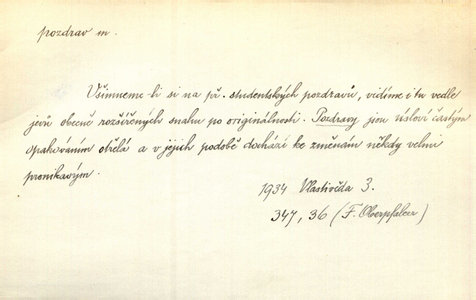 pozdrav m.
Všimneme-li si na př. studentských pozdravů, vidíme i tu vedle
jevů obecně rozšířených snahu po originálnosti. Pozdravy jsou úsloví častým
opakováním otřelá a v jejich podobě dochází ke změnám někdy velmi
pronikavým.
1934 Vlastivěda 3.
347, 36 (F. Oberpfalcer)